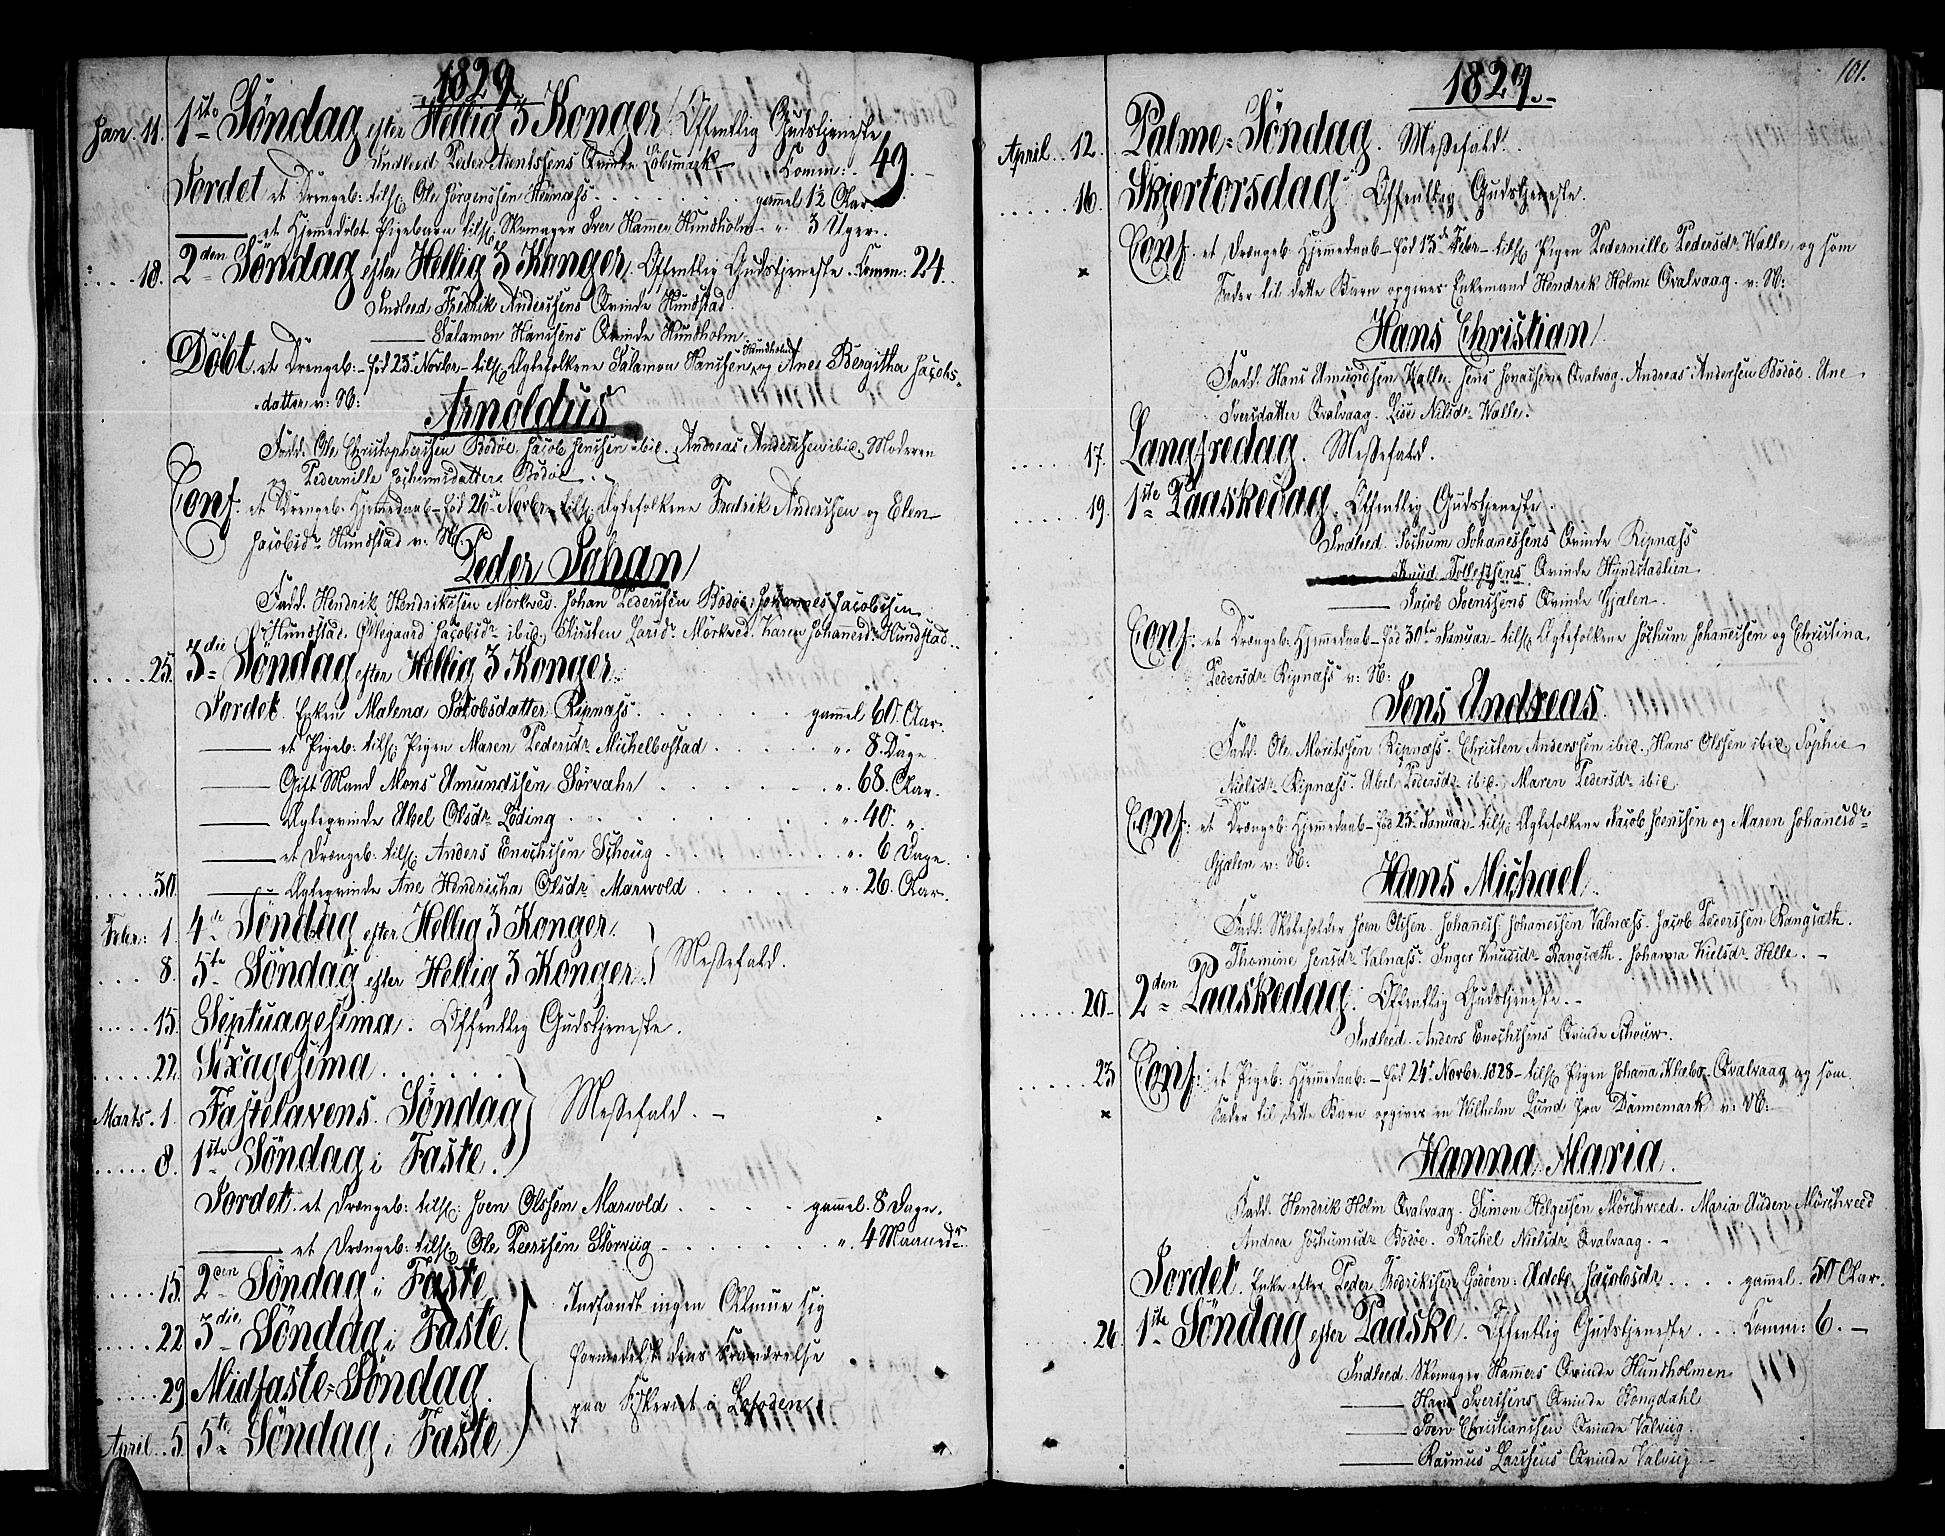 1829
Jan. 11. 1ste Søndag efter Hellig 3 Konger. Offentlig Gudstjeneste
Indleed Peder Arentssens Qvinde Løbsmark Comm: 49.
Jordet et Drengeb: tilh: Ole Jørgenssen Hernæss gammel 12 Aar.
et Hjemedøbt Pigebarn tilh: Skomager Iver Hammer Hundholm " 3 Uger.
18. 2den Søndag efter Hellig 3 Konger. Offentlig Gudstjeneste. Comm: 24.
Indleed Fredrik Anderssens Qvinde Hundstad
Salamon Hanssens Qvinde Hundholm
Døbt et Drengeb: - fød 23de Novbr - tilh: Ægtefolkene Salamon Hanssen Hundholm og Ane Bergitha Jacobs-
datter v: N:
Arnoldus
Fadd. Ole Christophersen Bodøe. Jacob Jenssen ibid. Andreas Anderssen ibid. Moderen
og Pedernille Jochumsdatter Bodøe.
Conf: et Drengeb: Hjemedaab - fød 26de Novbr - tilh: Ægtefolkene Fredrik Anderssen og Elen
Jacobsdr Hundstad v: N:
Peder Johan
Fadd. Hendrik Hendrikssen Mørkved. Johan Pederssen Bodøe. Johannes Jacobssen
Hundstad. Ollegaard Jacobsdr ibid. Kirsten Larsdr Mörkved. Karen Johannesdr Hundstad.
25. 3die Søndag efter Hellig 3 Konger.
Jordet. Enken Malena Jacobsdatter Ripnæss gammel 60 Aar.
et Pigeb: tilh: Pigen Maren Pedersdr Michelbostad " 8 Dage
Gift Mand Mons Amundssen Sørvahr " 68. Aar.
Ægteqvinde Abel Olsdr Løding " 40. "
et Drængeb: tilh: Anders Enochssen Schoug " 6 Dage.
30. Ægteqvinde Ane Hendricha Olsdr Marwold " 26. Aar.
Febr: 1 4de Søndag efter Hellig 3 Konger.
8. 5te Søndag efter Hellig 3 Konger. Messefald.
15. Septuagesima. Offentlig Gudstjeneste.
22. Sexagesima
Marts. 1. Fastelavens Søndag Messefald. -
8. 1ste Søndag i Faste.
Jordet et Drængeb: tilh: Joen Olssen Marwold gammel 8 Dage.
et Drængeb: tilh: Ole Peerssen Storviig " 4 Maaneder
15. 2den Søndag i Faste
22 3die Søndag i Faste.
29. Midfaste-Søndag.
April. 5. 5te Søndag i Faste
Indfandt ingen Almue sig
formedelst dens Fraværelse
paa Fiskeriet i Lofoden.
1829.
101.
April 12. Palme-Søndag. Messefald.
16. Skjertorsdag. Offentlig Gudstjeneste.
Conf. et Drengeb: Hjemedaab - fød 13de Febr - tilh: Pigen Pedernille Pedersdr Walle, og som
Fader til dette Barn opgives Enkemand Hendrik Holm Qvalvaag. v: N:
Hans Christian
Fadd. Hans Amundsen Walle. Jens Jonassen Qvalvog. Andreas Andersen Bodøe. Ane
Iversdatter Qvalvaag. Lise Nilsdr Walle.
17. Langfredag. Messefald.
19. 1ste Paaskedag. Offentlig Gudstjeneste.
Indleed. Jochum Johanessens Qvinde Ripnæss
Knud Tollefsens Qvinde Hundstadlien
Jacob Joenssens Qvinde Gjælen.
Conf: et Drengeb: Hjemmedaab - fød 30te Januar - tilh: Ægtefolkene Jochum Johannessen og Christina
Pedersdr Ripnæss v: N:
Jens Andreas.
Fadd. Ole Moritssen Ripnæss. Christen Anderssen ibid. Hans Olssen ibid. Sophie
Nielsdr Ripnæss. Abel Pedersdr ibid. Maren Pedersdr ibid.
Conf: et Drængeb: Hjemmedaab - fød 23de Januar - tilh: Ægtefolkene Jacob Joenssen og Maren Johanesdr
Gjælen v: N:
Hans Michael.
Fadd: Skoleholder Joen Olssen. Johannes Johanessen Valnæss. Jacob Pederssen Rangsæth.
Thomine Jensdr Valnæss. Inger Knudsdr Rangsæth. Johanna Nielsdr Helle. -
20. 2den Paaskedag. Offentlig Gudstjeneste. -
Indleed. Anders Enochssens Qvinde Schouw.
23 Conf: et Pigeb: Hjemmedaab: - fød 24de Novbr. 1828 - tilh: Pigen Johana Klæbo Qvalvaag, og som
Fader til dette Barn opgives en Wilhelm Lund fra Dannemark v: N:
Hanna Maria.
Fadd. Hendrik Holm Qvalvaag. Simon Helgessen Mörchved. Maria Auden Mörchved
Andrea Jochumsdr Bodøe. Rachel Nielsdr Qvalvaag. -
Jordet. Enke efter Peder Fredrikssen Godøen: Aldets Jacobsdr gammel. 50 Aar.
26. 1ste Søndag efter Paaske. Offentlig Gudstjeneste Comm: 6. -
Indleed. Skomager Hammers Qvinde Hundholmen
Hans Iverssens Qvinde Kongdahl
Joen Christianssen Qvinde Valviig.
Rasmus Larssens Qvinde Valviig -